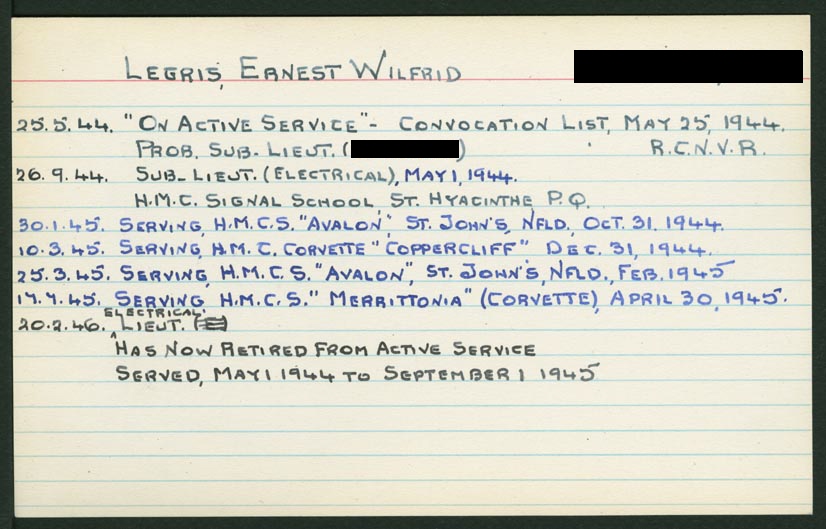 LEGRIS, ERNEST WILFRID
25.5.44. "ON ACTIVE SERVICE" - CONVOCATION LIST, MAY 25, 1944.
PROB. SUB-LIEUT. ( ) R.C.N.V.R.
26.9.44. SUB-LIEUT. (ELECTRICAL), MAY 1, 1944.
H.M.C. SIGNAL SCHOOL, ST. HYACINTHE P.Q.
30.1.45. SERVING, H.M.C.S. "AVALON", ST. JOHN'S, NFLD, OCT. 31, 1944.
10.3.45. SERVING, H.M.C. CORVETTE "COPPERCLIFF" DEC. 31, 1944.
25.3.45. SERVING, H.M.C.S. "AVALON", ST. JOHN'S, NFLD., FEB. 1945
SERVING H.M.C.S. "MERRITTONIA" (CORVETTE), APRIL 30, 1945.
20.2.46. ELECTRICAL LIEUT.
HAS NOW RETIRED FROM ACTIVE SERVICE
SERVED, MAY 1 1944 TO SEPTEMBER 1 1945